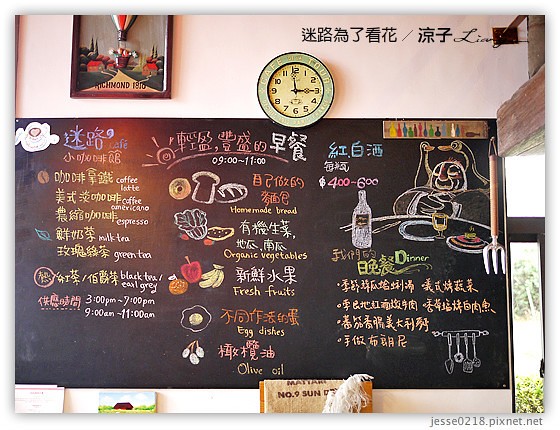 迷路為了看花 / 涼子 Liang
RICHMOND 1910
迷路 café
小咖啡館
咖啡拿鐵 coffee latte
美式淡咖啡 coffee americano
濃縮咖啡 espresso
鮮奶茶 milk tea
玫瑰綠茶 green tea
熱 紅茶/伯爵茶 black tea / earl grey
供應時間 3:00pm~7:00pm
9:00am~11:00am
輕盈,豐盛的早餐
09:00~11:00
自己做的麵包
Homemade bread
有機生菜,
地瓜,南瓜
Organic vegetables
新鮮水果
Fresh fruits
不同作法的蛋
Egg dishes
橄欖油
Olive oil
紅,白酒
每瓶
$400-600
我們的晚餐 Dinner
義式烤蔬菜
手做布朗尼
NO.9 SUN
jesse0218.pixnet.net